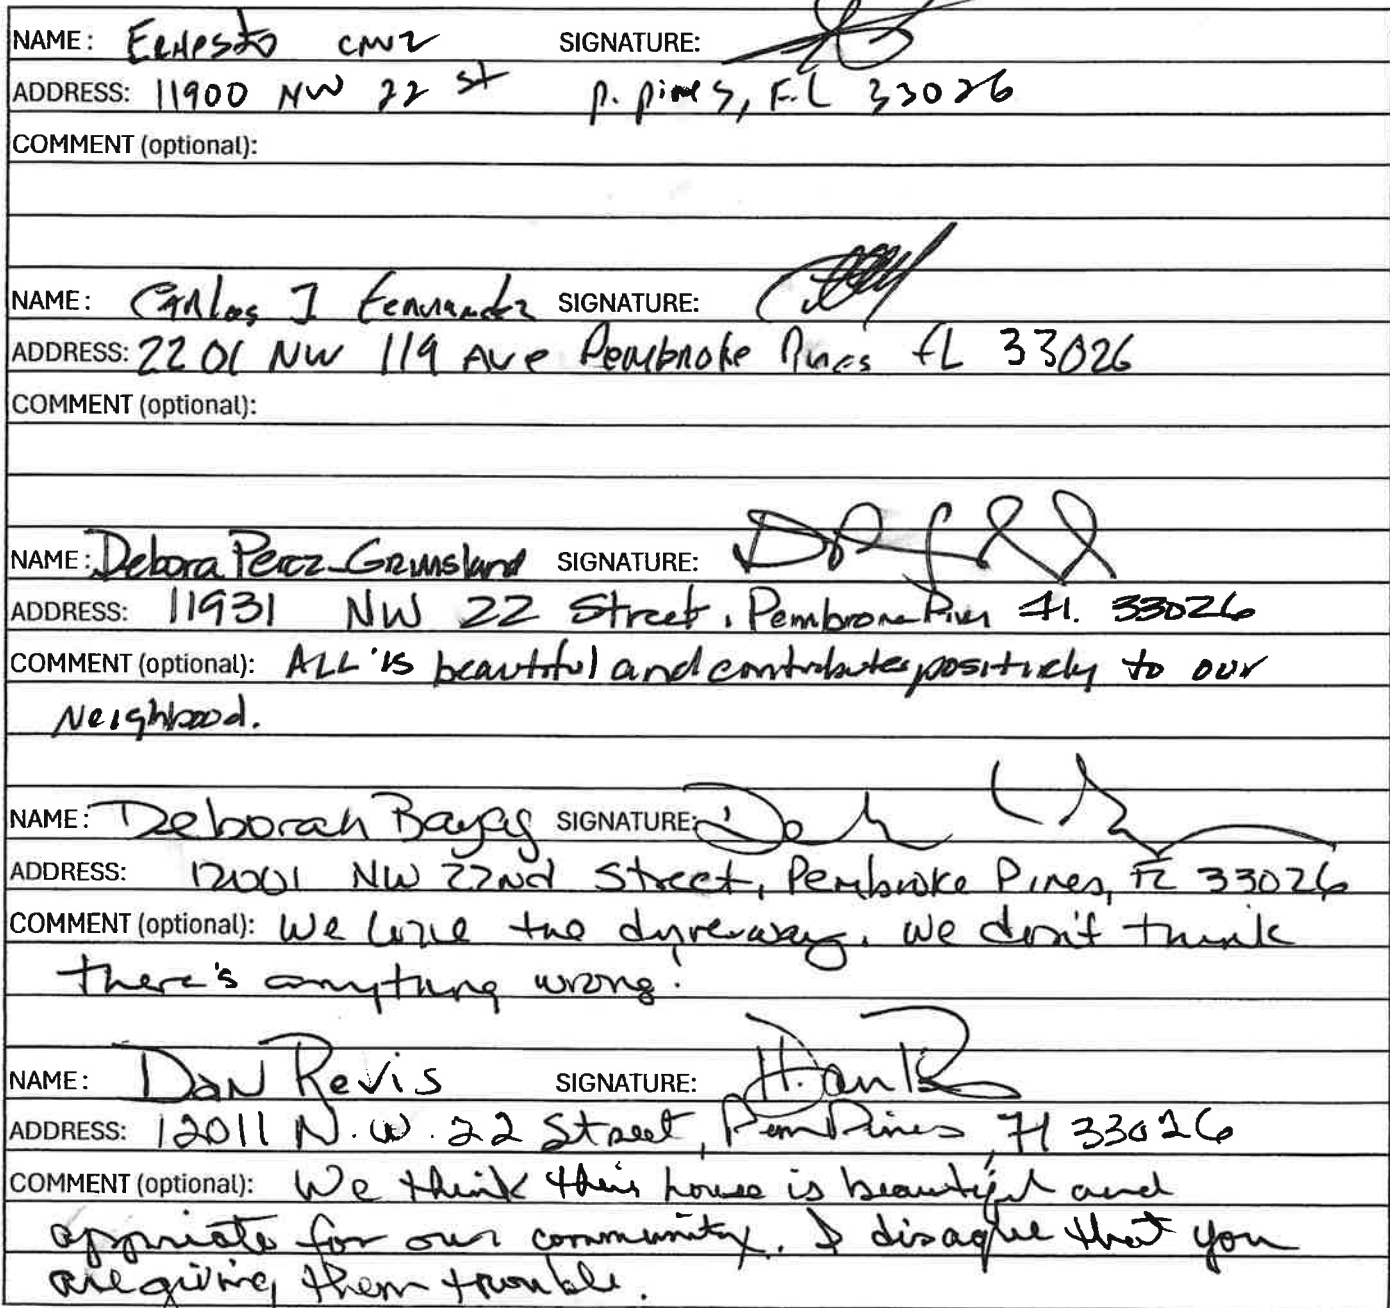 NAME: Ernesto Cruz SIGNATURE:
ADDRESS: 11900 NW 22 st P. Pines, FL 33026
COMMENT (optional):
NAME: Carlos J Fernandez SIGNATURE:
ADDRESS: 2201 NW 119 Ave Pembroke Pines FL 33026
COMMENT (optional):
NAME: Debora Perez-Grimsland SIGNATURE:
ADDRESS: 11931 NW 22 Street, Pembroke Pines Fl. 33026
COMMENT (optional): ALL is beautiful and contributes positively to our
Neighbood.
NAME: Deborah Bayag SIGNATURE:
ADDRESS: 12001 NW 22nd Street, Pembroke Pines, FL 33026
COMMENT (optional): We love the dyreway. We don't think
there's anything wrong!
NAME: Dan Revis SIGNATURE: H. Dan R
ADDRESS: 12011 N.W. 22 Street, Pem Pines, Fl 33026
COMMENT (optional): We think their house is beautiful and
appriate for our community. I disagree that you
are giving them trouble.